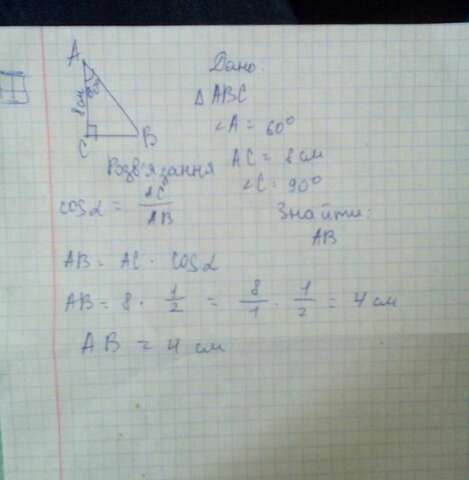 A
8 см
60°
C
B
Дано:
△ ABC
∠A = 60°
AC = 8 см
∠C = 90°
Знайти:
AB
Розв'язання
cos α = AC / AB
AB = AC · cos α
AB = 8 · 1/2 = 8/1 · 1/2 = 4 см
AB = 4 см